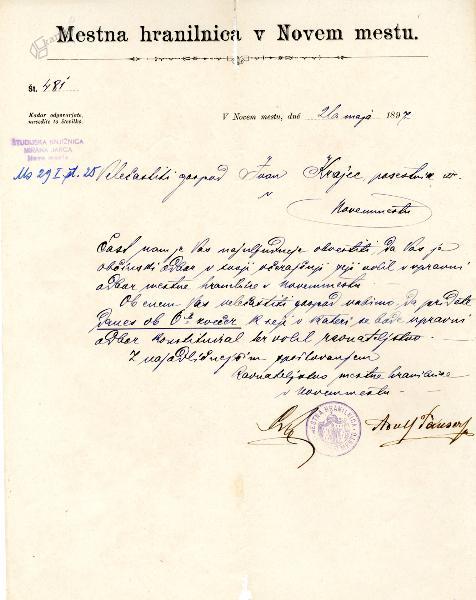 Mestna hranilnica v Novem mestu.
Št. 481
Kadar odgovarjate,
navedite to številko.
V Novem mestu, dné 21a maja 1897
ŠTUDIJSKA KNJIŽNICA
MIRANA JARCA
Novo mesto
Ms 29 I. št. 25
Velečastiti gospod Ivan Krajec posestnik itr.
v
Novemmestu
Čast nam je Vas najuljudneje obvestiti, da Vas je
občinski odbor v svoji včerajšnji seji volil v upravni
odbor mestne hranilnice v Novemmestu
Ob enem Vas velečastiti gospod vabimo, da pridete
danes ob 6i zvečer k seji v kateri se bode upravni
odbor konstituiral ter volil ravnateljstvo.
Z najodličnejšim spoštovanjem
Ravnateljstvo mestne hranilnice
v Novemmestu
MESTNA HRANILNICA
Adolf